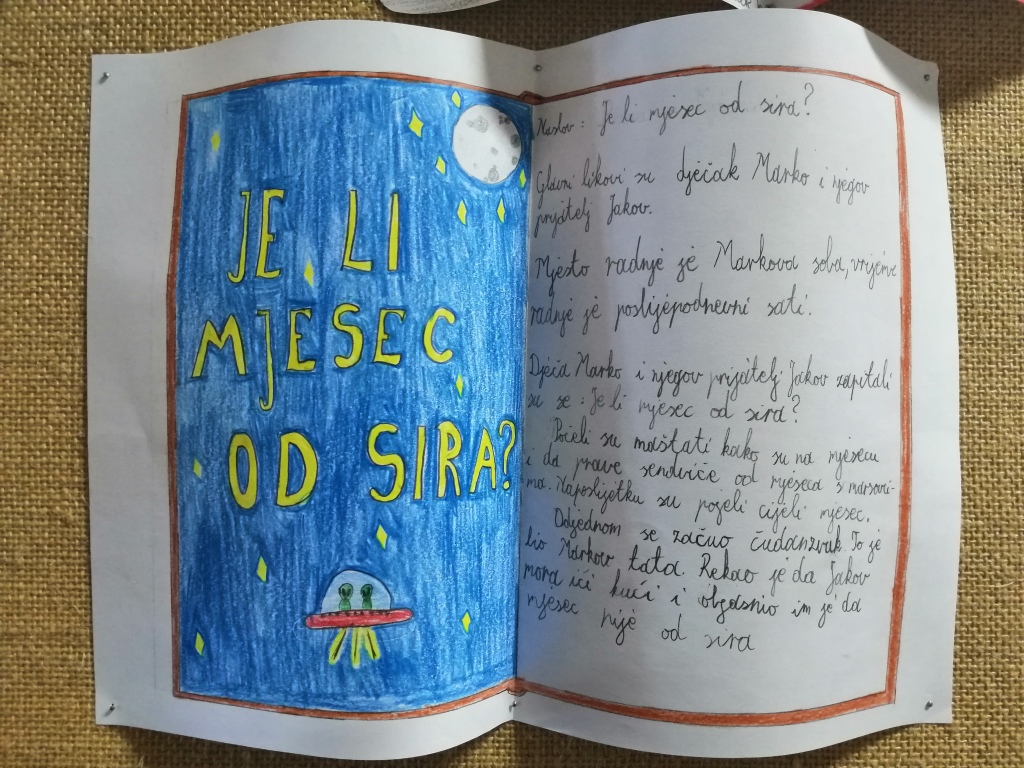 JE LI
MJESEC
OD SIRA?
Naslov: Je li mjesec od sira?
Glavni likovi su dječak Marko i njegov
prijatelj Jakov.
Mjesto radnje je Markova soba, vrijeme
radnje je poslijepodnevni sati.
Dječa Marko i njegov prijatelj Jakov zapitali
su se: Je li mjesec od sira?
Počeli su maštati kako su na mjesecu
i da prave sendviče od mjeseca s marsovci-
ma. Naposlijetku su pojeli cijeli mjesec.
Odjednom se začuo čudanzvuk. To je
bio Markov tata. Rekao je da Jakov
mora ići kući i objasnio im je da
mjesec nije od sira